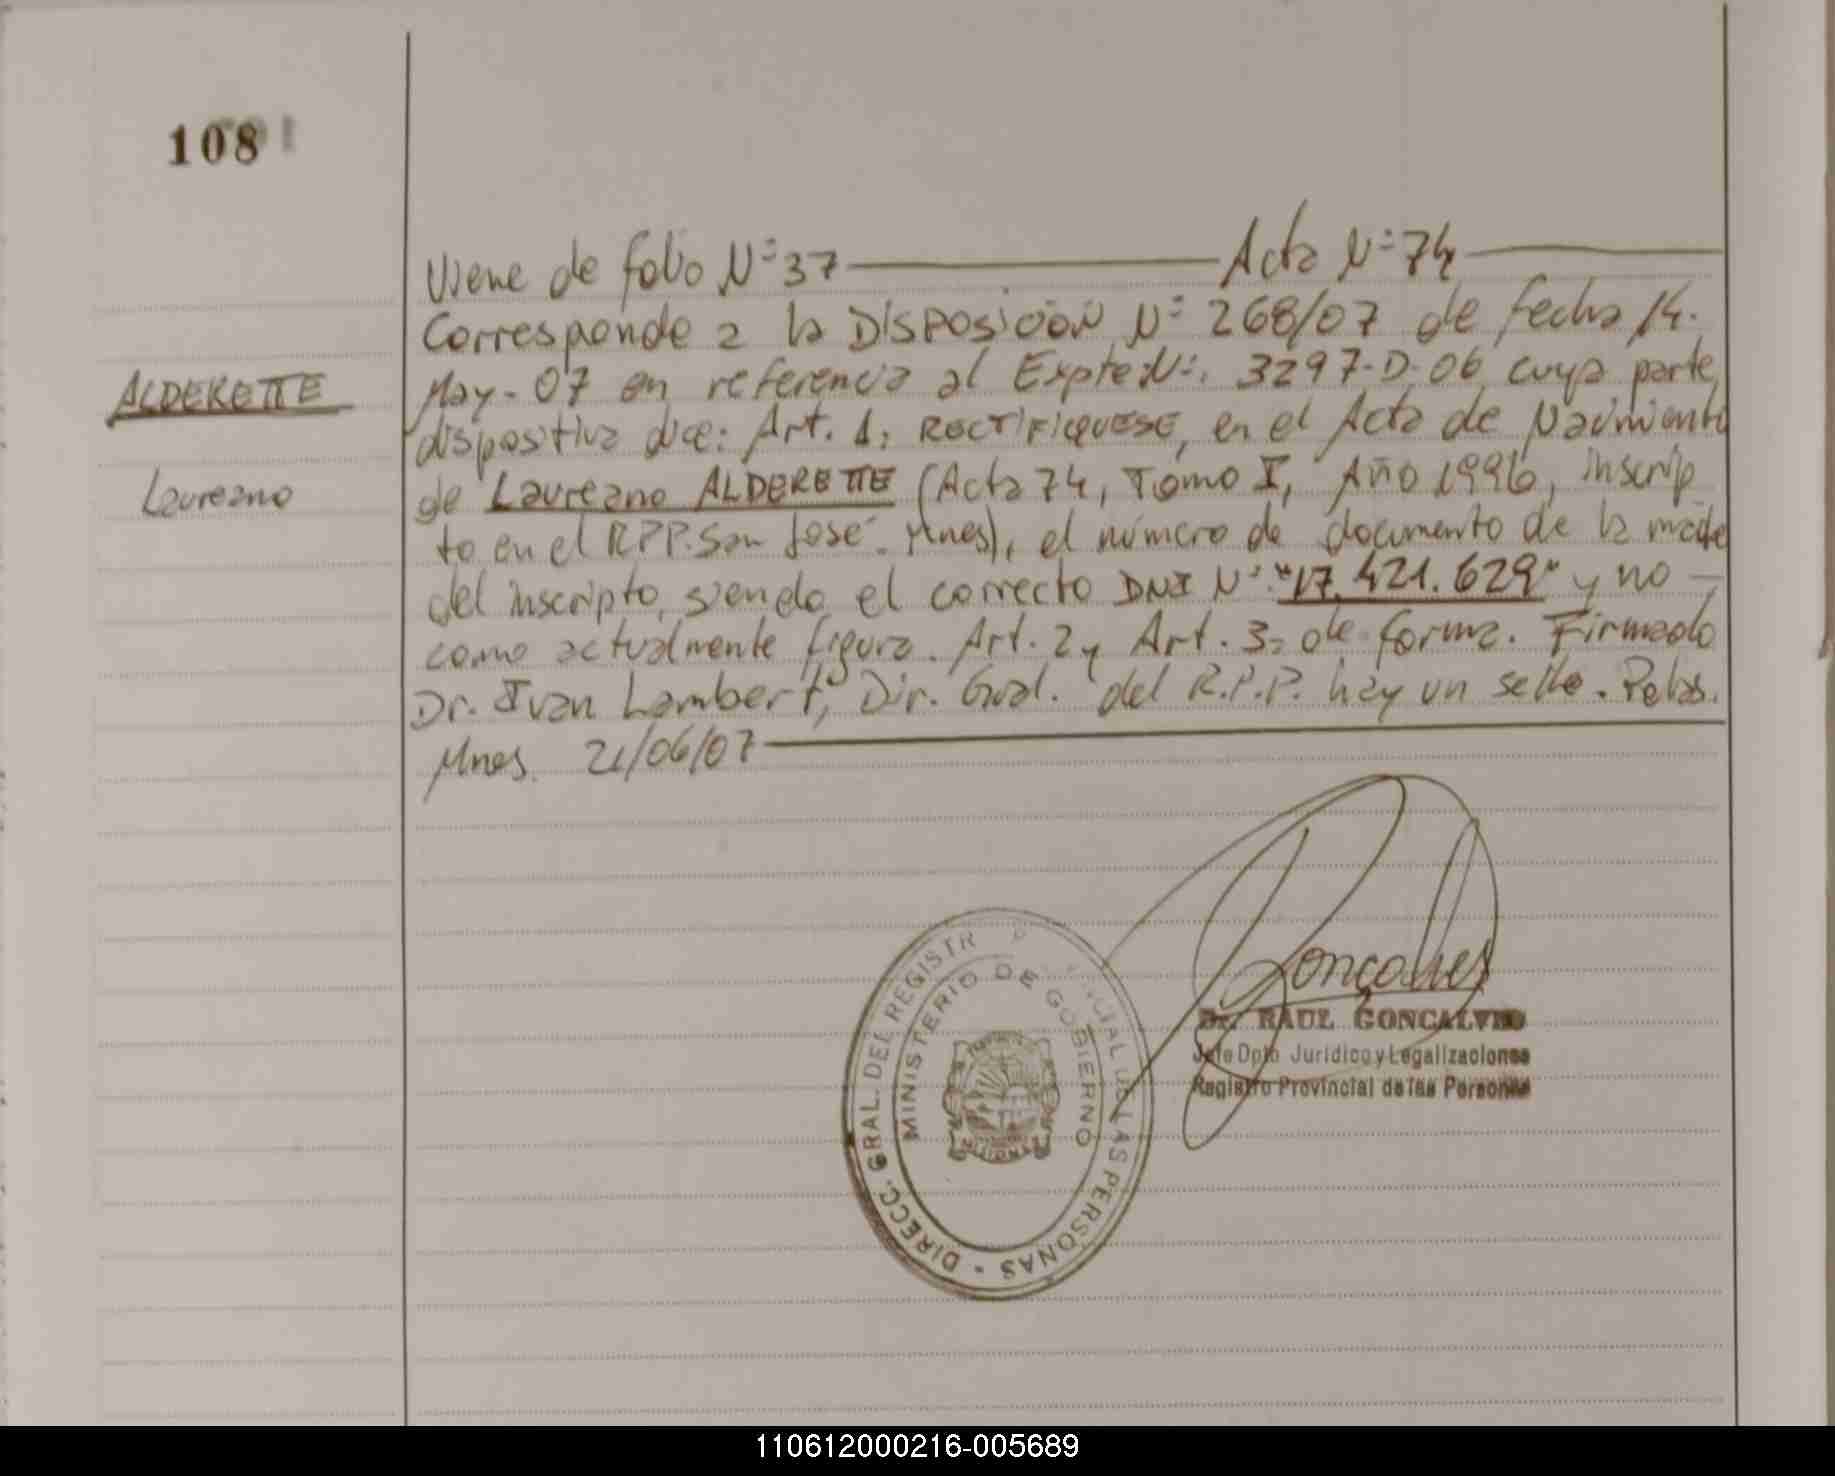 108
ALDERETTE
Laureano
Viene de folio Nº 37 ———— Acta Nº 74 ————
Corresponde a la DISPOSICIÓN Nº 268/07 de fecha 14-
May-07 en referencia al Expte Nº: 3297-D-06 cuya parte
dispositiva dice: Art. 1: RECTIFIQUESE, en el Acta de Nacimiento
de Laureano ALDERETTE (Acta 74, Tomo I, Año 1996, inscrip
to en el RPP. San José. Mnes), el número de documento de la madre
del inscripto, siendo el correcto DNI Nº "17.421.629" y no —
como actualmente figura. Art. 2 y Art. 3: de forma. Firmado
Dr. Ivan Lambert, Dir. Gral. del R.P.P. hay un sello. Pdas.
Mnes. 21/06/07 ————
DIRECC. GRAL. DEL REGISTR PROVINCIAL DE LAS PERSONAS -
MINISTERIO DE GOBIERNO
MISIONES
Goncalves
Dr. RAUL GONCALVES
Jefe Dpto Jurídico y Legalizaciones
Registro Provincial de las Personas
110612000216-005689